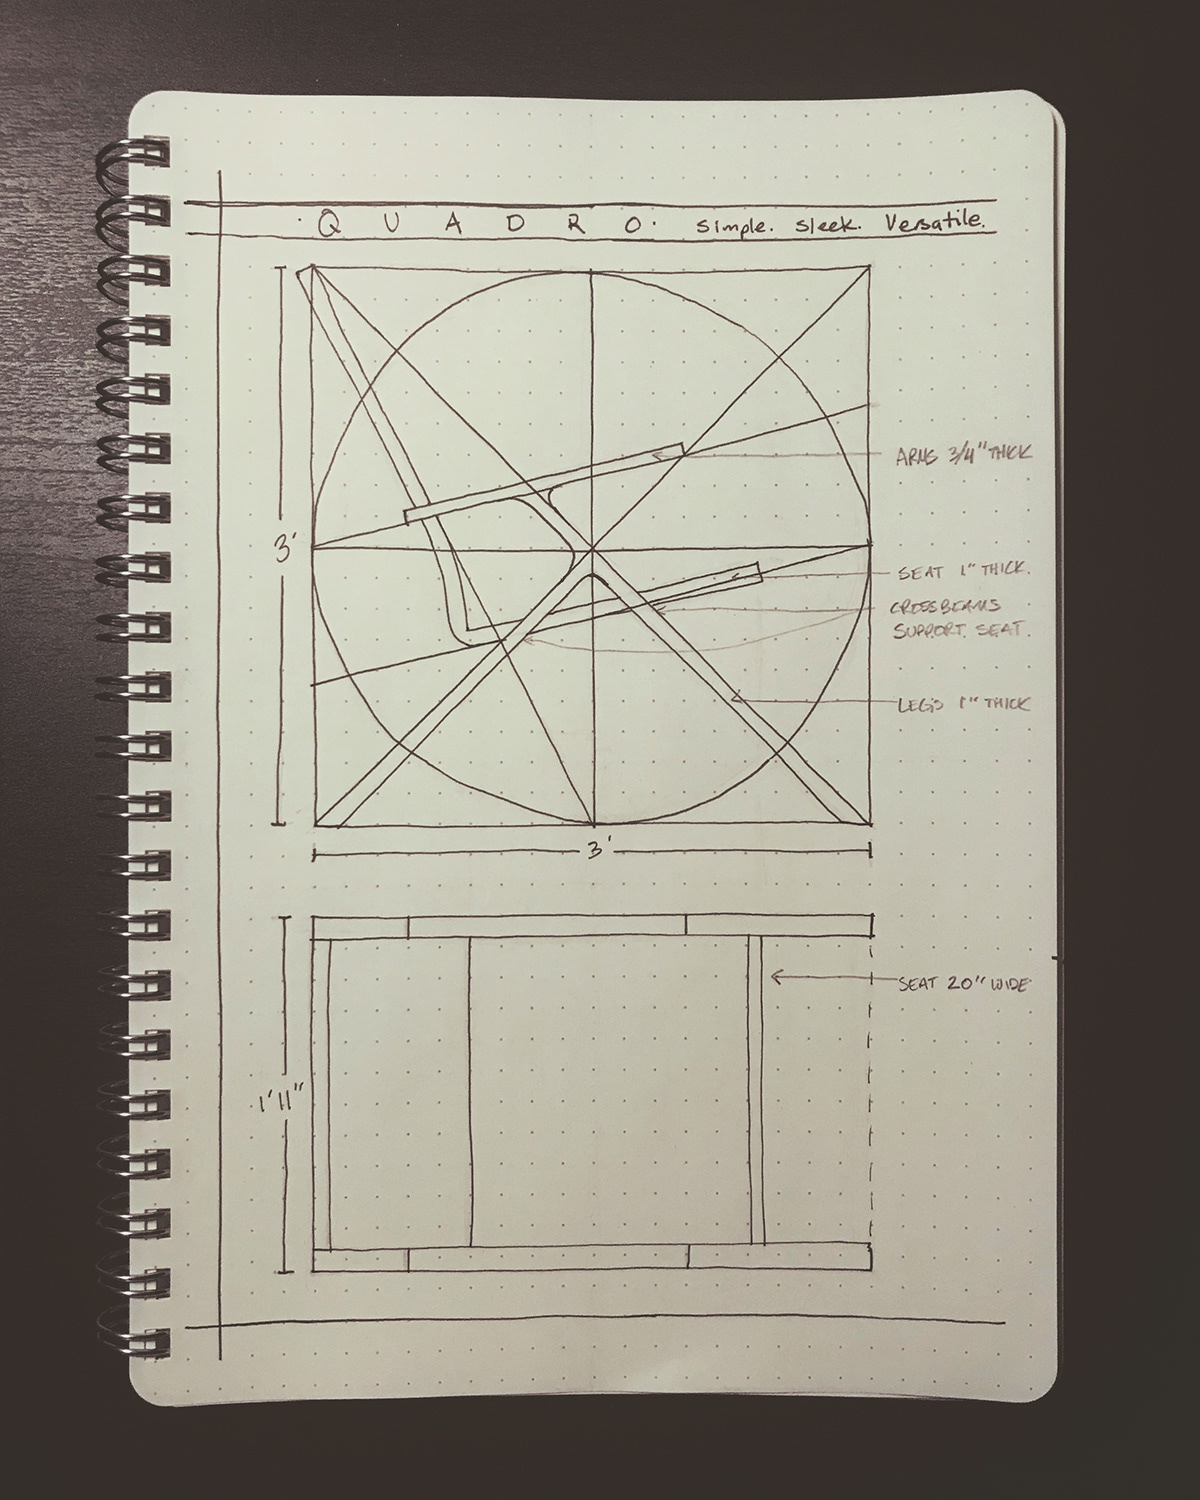 · Q U A D R O · Simple. Sleek. Versatile.
ARMS 3/4" THICK
3'
SEAT 1" THICK.
CROSSBEAMS
SUPPORT SEAT.
LEGS 1" THICK
3'
SEAT 20" WIDE
1'11"